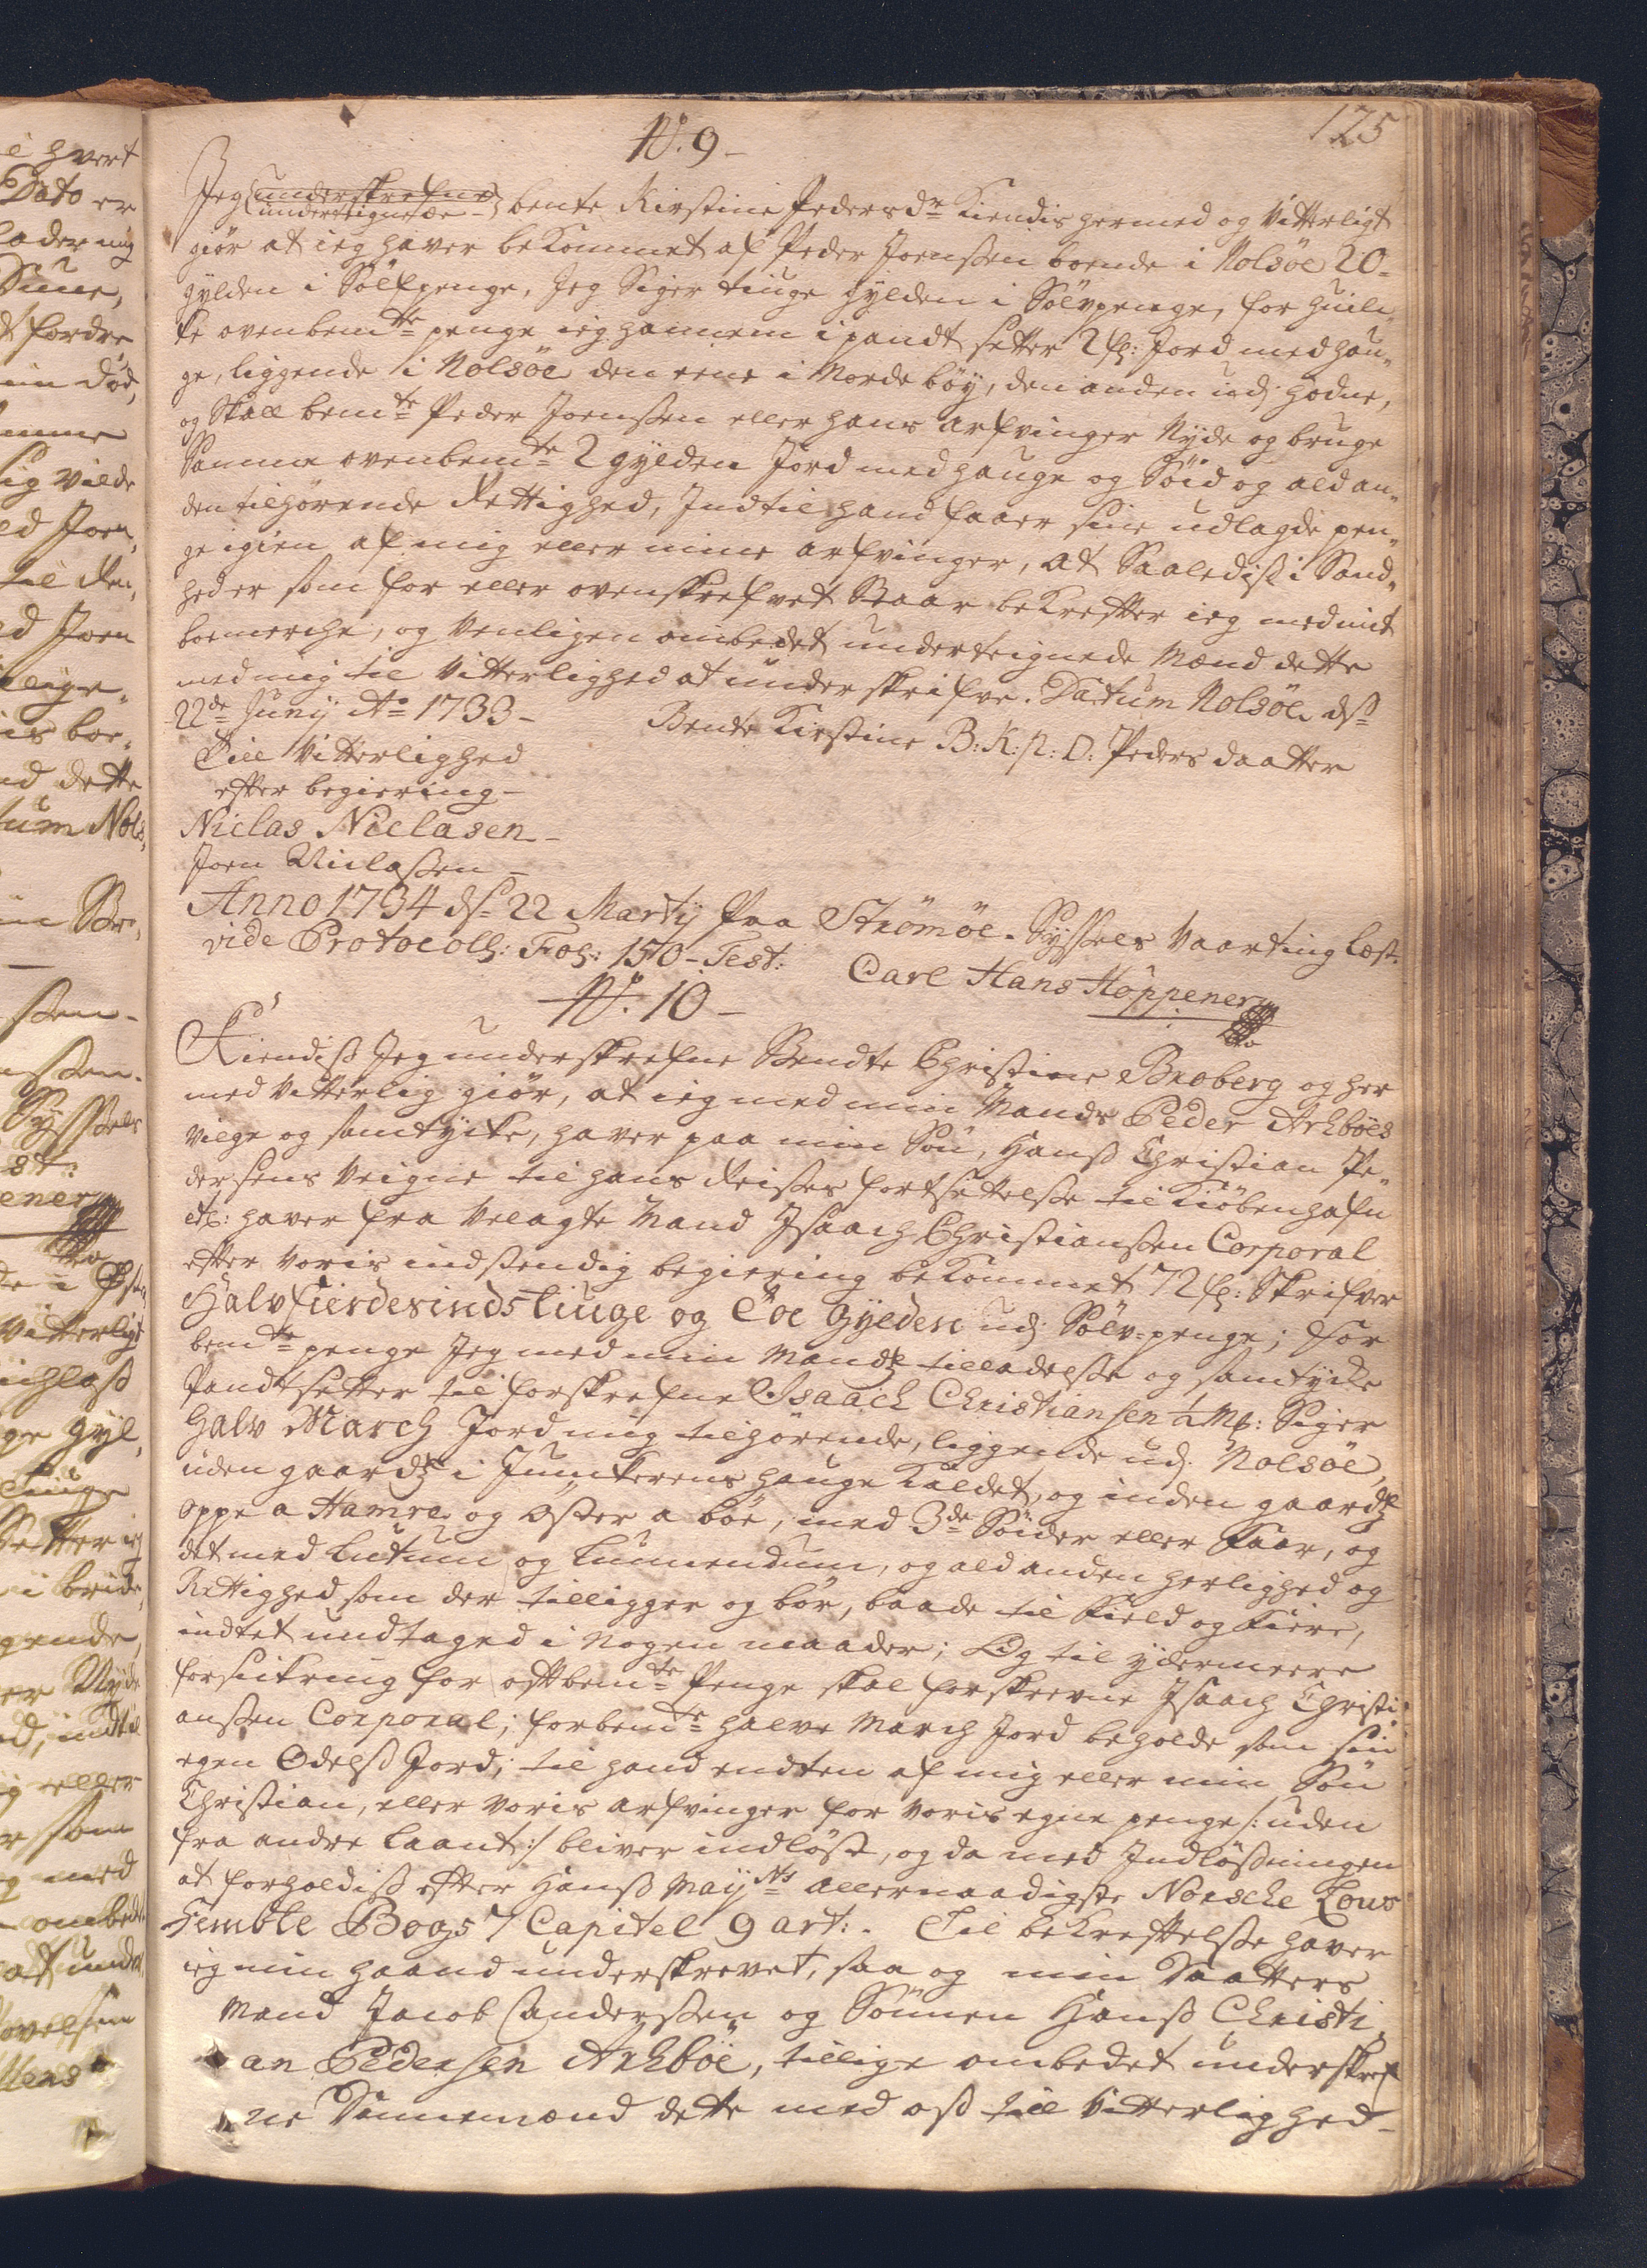 125
N. 9 -
Jeg underskrefne
undertegnede bente Kirstine Pedersdr Kiendis hermed og Vitterligt
giör at ieg haver bekommet af Peder Joenssen boende i Nolsöe 20 =
gylden i Sölfpenge, Jeg Siger tiuge gylden i Sölvpenge, for huil„
ke ovenbemte penge ieg hannem i pandt setter 2 gl: Jord med hau„
ge, liggende i Nolsöe den eene i Nordeböy, den anden udj hodne,
og Skall bemte Peder Joenssen eller hans arfvinger Nyde og bruge
Samme ovenbemte 2 gylden Jord med hauge og Söid og ald an„
den tilhörende Rettighed, Indtil hand faaer sine udlagde pen„
ge igien af mig eller mine arfvinger, at Saalediss i Sand„
hed er som for eller ovenskrefvet Staar bekrefter ieg med mit
boemerche, og Venligen ombedet underteignede Mænd dette
med mig til Vitterlighed at underskrifve. Datum Nolsöe ds
22de Junij Ao 1733 -
Bendte Kirstine B: K: P: D: Peders daatter
Till Vitterlighed
efter begiering -
Niclas Niclasen -
Joen Niclassen -
Anno 1734 ds 22 Martij Paa Strömöe Syssels Vaarting læst
vide Protocoll: Fol: 150 - Test:
Carl Hans Höppener
N. 10 -
Kiendiss Jeg underskrefne Bendte Christine Broberg og her
med Vitterlig giör, at ieg med min Mands Peder Arhböes
vilge og samtycke, haver paa min Sön, Hanss Christian Pe„
dersens Veigne til hans Reisses fortsettelsse til Kiöbenhafn
etc: haver fra Velagte Mand Isaach Christianssen Corporal
efter voris indstendig begiering bekommet 72 gl: Skrifver
Halvfierdesindstiuge og Toe Gylden udj Sölv=penge; for
bemte penge Jeg med min Mands tilladelsse og samtycke
Pandtsetter til forskrefne Isaach Christiansen ½ Mk: Siger
Halv March Jord mig tilhörende, liggende udj Nolsöe,
uden gaards i Junckerens hauge kaldet, og inden gaards
oppe a Hamre og öster a böe, med 3de Söider eller Faar, og
det med Lutum og Lunnendum, og ald anden herlighed og
Rettighed som der tilligger og bör, baade til Field og Fiere,
indtet undtaged i nogen maader; Og til ydermeere
forsickring for oftbemte Penge skal forskrevne Isaach Christi
anssen Corporal; forbemte halve March Jord beholde som sin
egen Odelss Jord; til hand endten af mig eller min Sön
Christian, eller voris arfvinger for voris egne penge /: uden
fra andre laant :/ bliver indlöst, og da med Indlössningen
at forholdiss efter Hanss Mayts allernaadigste Norsche Lovs
Femte Bogs 7 Capitel 9 art: . Til bekreftelsse haver
ieg min haand underskrevet, saa og min Daatters
Mand Jacob Sanderssen og Sönnen Hanss Christi
an Pedersen Arhböe, tillige ombedet underskref
ne Dannemænd dette med oss till Vitterlighed -